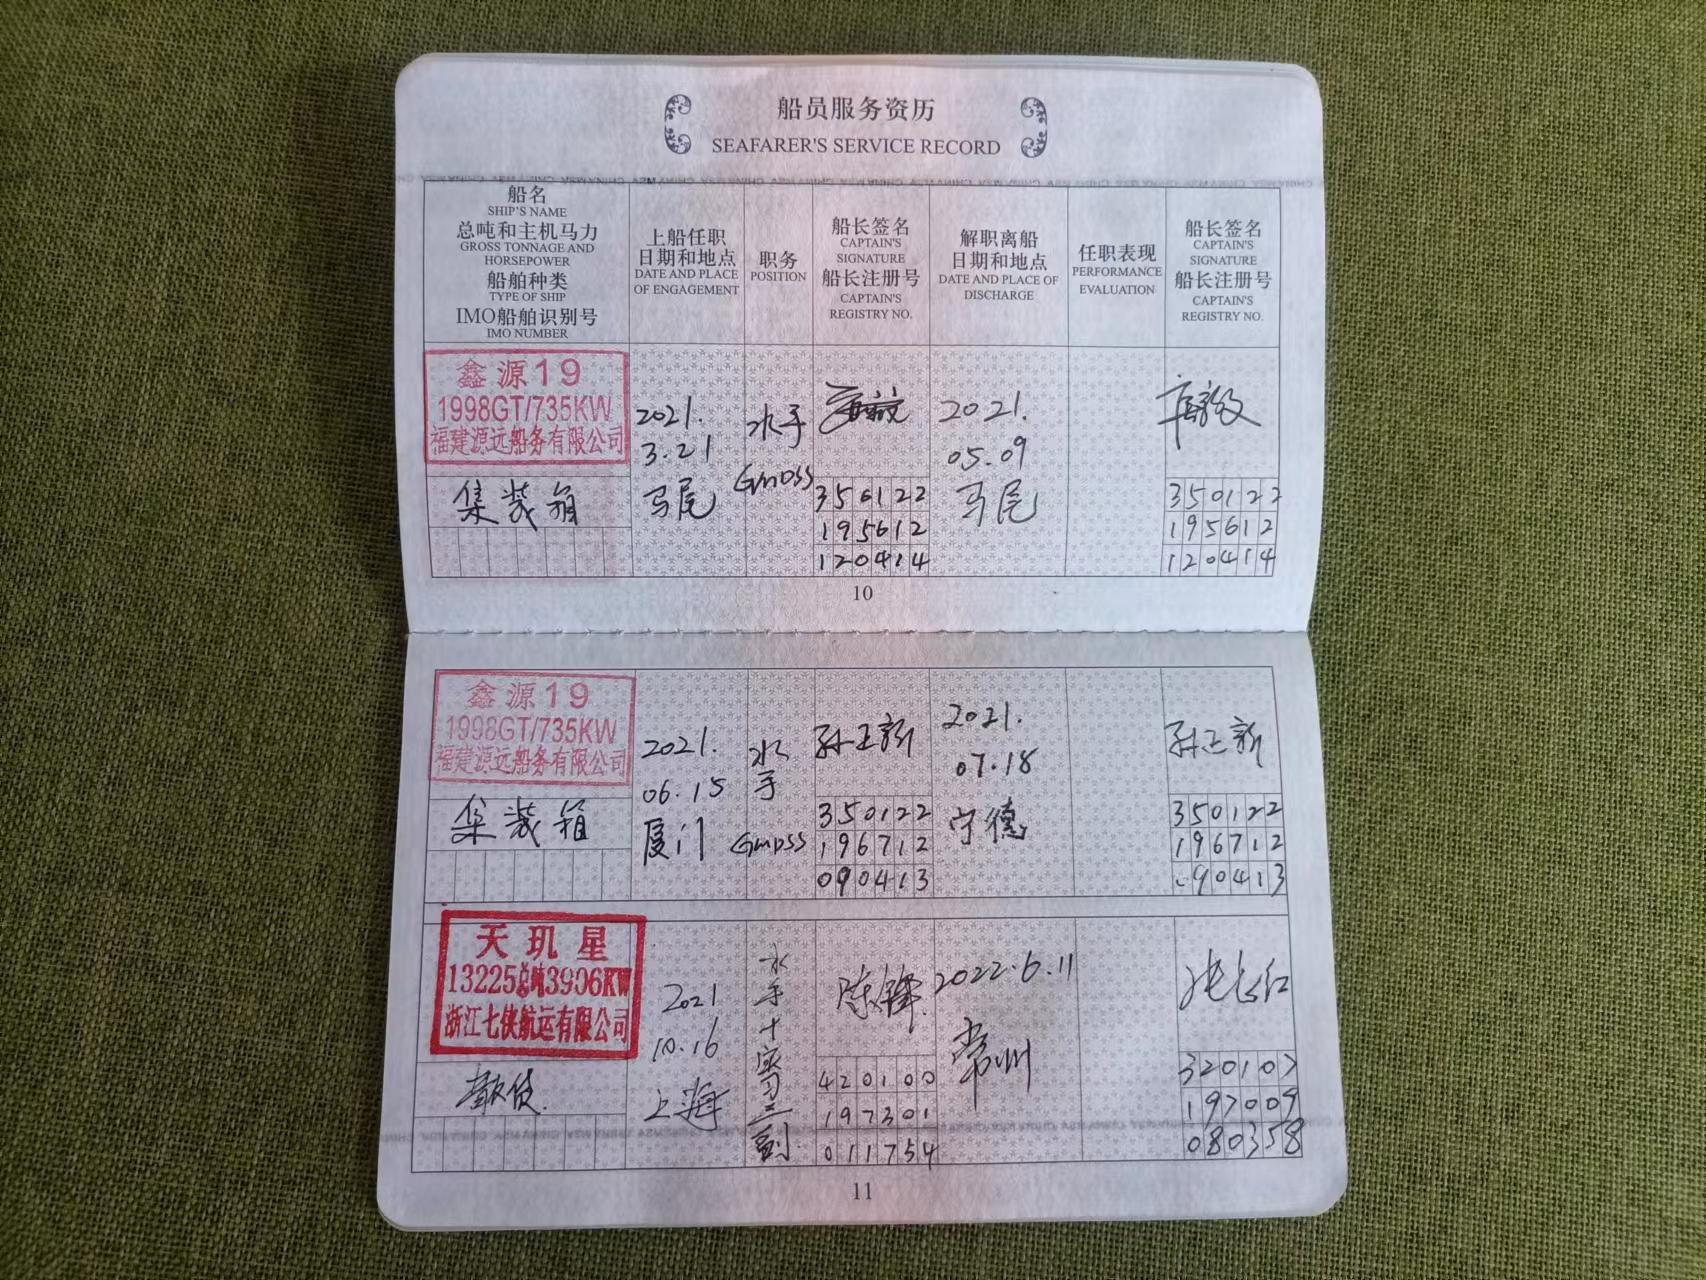 船员服务资历
SEAFARER'S SERVICE RECORD
船名
SHIP'S NAME
总吨和主机马力
GROSS TONNAGE AND
HORSEPOWER
船舶种类
TYPE OF SHIP
IMO船舶识别号
IMO NUMBER
上船任职
日期和地点
DATE AND PLACE
OF ENGAGEMENT
职务
POSITION
船长签名
CAPTAIN'S
SIGNATURE
船长注册号
CAPTAIN'S
REGISTRY NO.
解职离船
日期和地点
DATE AND PLACE OF
DISCHARGE
任职表现
PERFORMANCE
EVALUATION
船长签名
CAPTAIN'S
SIGNATURE
船长注册号
CAPTAIN'S
REGISTRY NO.
鑫源19
1998GT/735KW
福建源远船务有限公司
集装箱
2021.
3.21
马尾
水手
GMDSS
350122
195612
120414
2021.
05.09
马尾
350122
195612
120414
10
鑫源19
1998GT/735KW
福建源远船务有限公司
集装箱
2021.
06.15
厦门
水
手
GMDSS
孙正新
350122
196712
090413
2021.
07.18
宁德
孙正新
350122
196712
090413
天玑星
13225总吨3906KW
浙江七侠航运有限公司
散货
2021
10.16
上海
水
手
十
实
习
三
副
陈锋
420100
197301
011754
2022.6.11
常州
张长红
320107
197009
080358
11